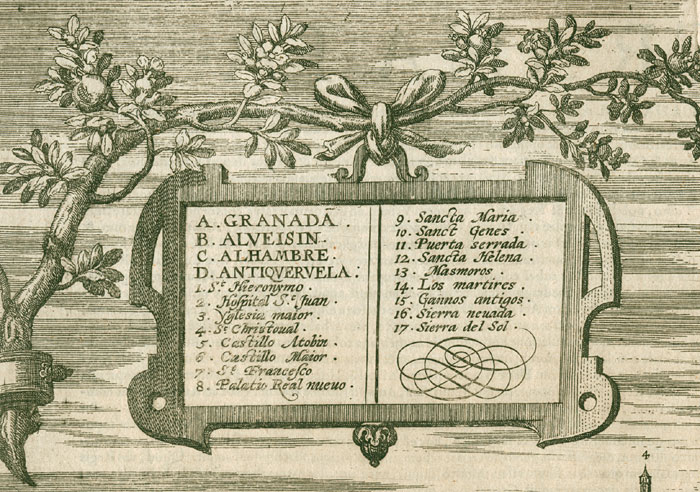 A. GRANADÃ
B. ALVEISIN.
C. ALHAMBRE.
D. ANTIQVERVELA:
1. S.ᵗ Hieronymo.
2. Hospital S.ᵗ Juan.
3. Yglesia maior.
4. S.ᵗ Christoual.
5. Castillo Atobin
6. Castillo Maior.
7. S.ᵗ Francesco
8. Palatio Real nuevo.
9. Sancta Maria.
10. Sanct Genes.
11. Puerta serrada.
12. Sancta Helena.
13. Masmoros.
14. Los martires.
15. Gannos antigos.
16. Sierra neuada.
17. Sierra del Sol.
4